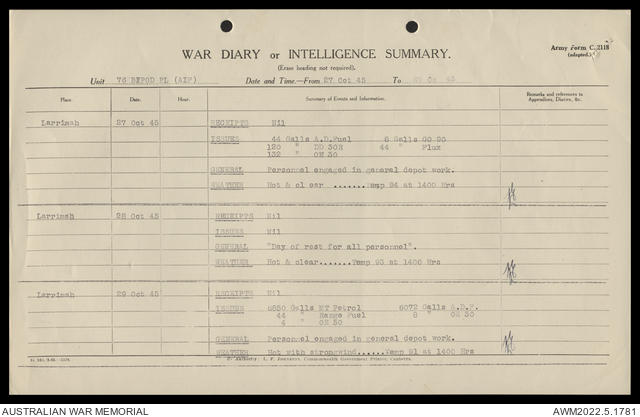 Army Form C.2118
(adapted)
WAR DIARY or INTELLIGENCE SUMMARY.
(Erase heading not required).
Unit 76 BIPOD PL (AIF) Date and Time.—From 27 Oct 45 To Oct 45
Place. Date. Hour. Summary of Events and Information. Remarks and references to Appendices, Diaries, &c.
Larrimah 27 Oct 45 RECEIPTS Nil
ISSUES 44 Galls A.D.Fuel 6 Galls GO 90
120 " DD 30H 44 " Flux
132 " OE 30
GENERAL Personnel engaged in general depot work.
WEATHER Hot & clear .......Temp 94 at 1400 Hrs
Larrimah 28 Oct 45 RECEIPTS Nil
ISSUES Nil
GENERAL "Day of rest for all personnel".
WEATHER Hot & clear.......Temp 93 at 1400 Hrs
Larrimah 29 Oct 45 RECEIPTS Nil
ISSUES Galls MT Petrol 6072 Galls A.D.F.
44 " Range Fuel 8 " OE 30
4 " OE 30
GENERAL Personnel engaged in general depot work.
WEATHER Hot with strongwind......Temp 91 at 1400 Hrs
By Authority: L. F. Johnston, Commonwealth Government Printer, Canberra.
AUSTRALIAN WAR MEMORIAL AWM2022.5.1781